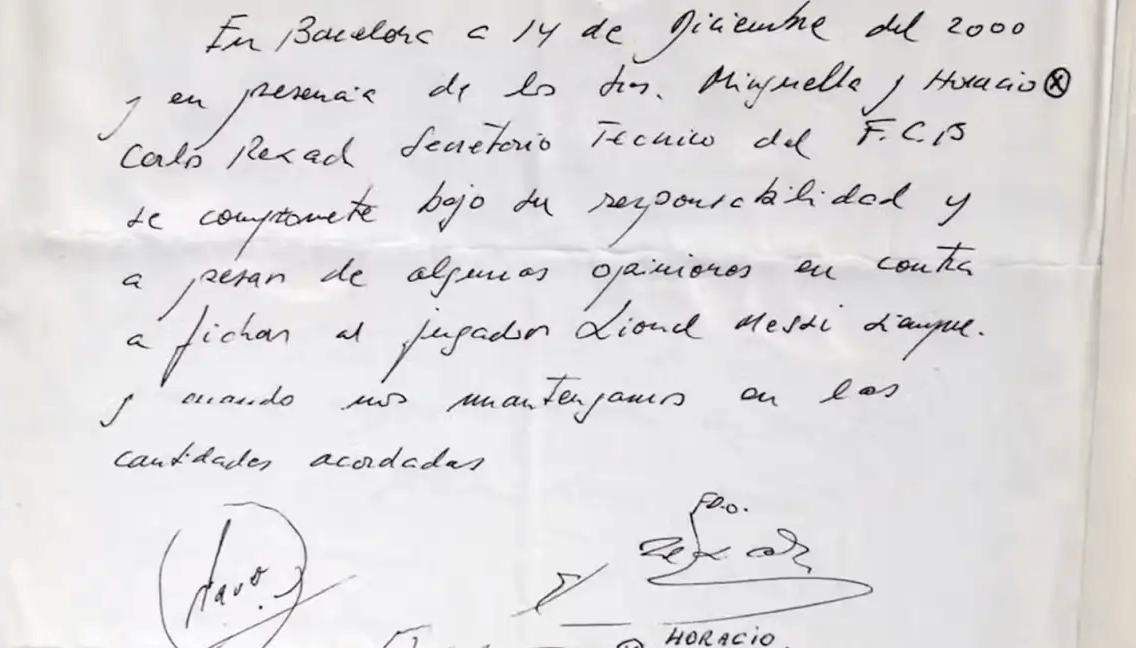 En Barcelona a 14 de Diciembre del 2000
y en presencia de los Srs. Minguella y Horacio ⓧ
Carlos Rexad Secretario Tecnico del F.C.B
se compromete bajo su responsabilidad y
a pesar de algunas opiniones en contra
a fichar al jugador Lionel Messi siempre.
y cuando nos mantengamos en las
cantidades acordadas
FDO.
Rexach
HORACIO